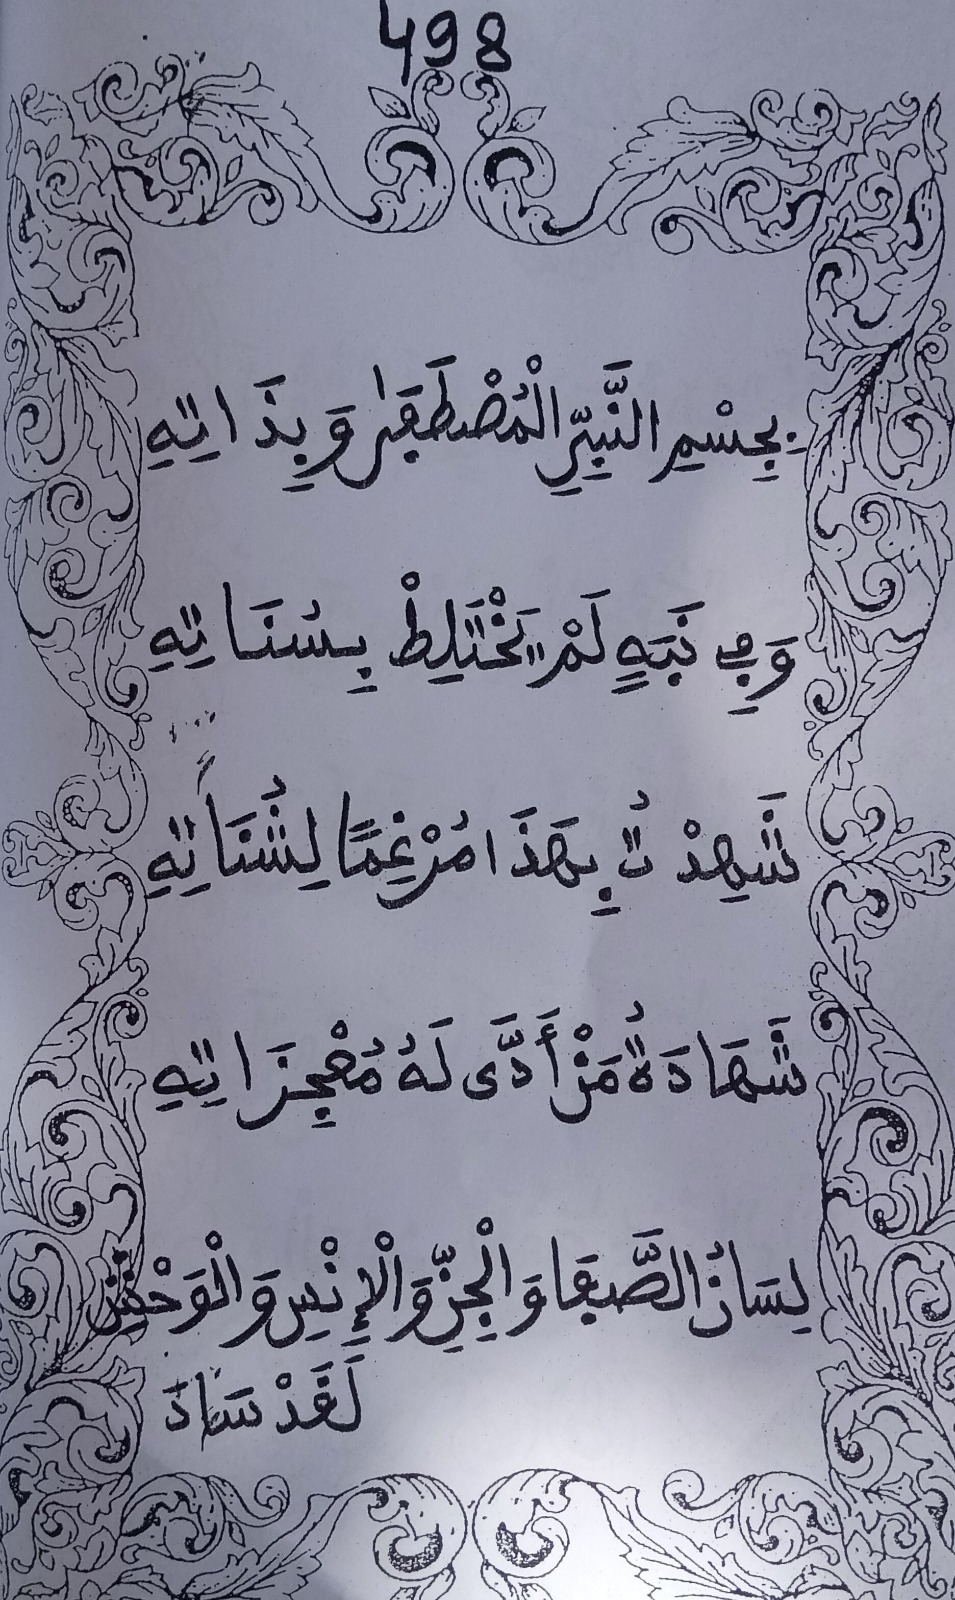 498
بِجِسْمِ النَّبِيِّ الْمُصْطَفَىٰ وَبِذَاتِهِ
وَفِي نَبَهٍ لَمْ يَخْتَلِطْ بِسُنَاتِهِ
شَهِدْتُ بِهَذَا مُرْغِمًا لِشُنَاتِهِ
شَهَادَةُ مَنْ أَدَّى لَهُ مُعْجِزَاتِهِ
لِسَانُ الصَّفَا وَالْجِنِّ وَالْإِنْسِ وَالْوَحْشِ
لَقَدْ سَادَ